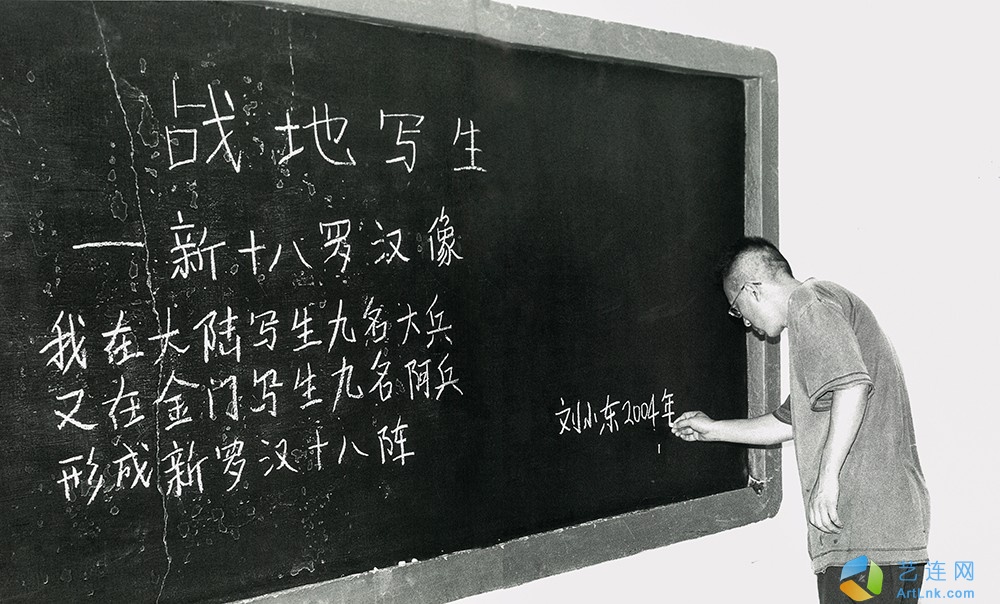 战地写生
—新十八罗汉像
我在大陆写生九名大兵
又在金门写生九名阿兵
形成新罗汉十八阵
刘小东2004年
艺连网
ArtLnk.com